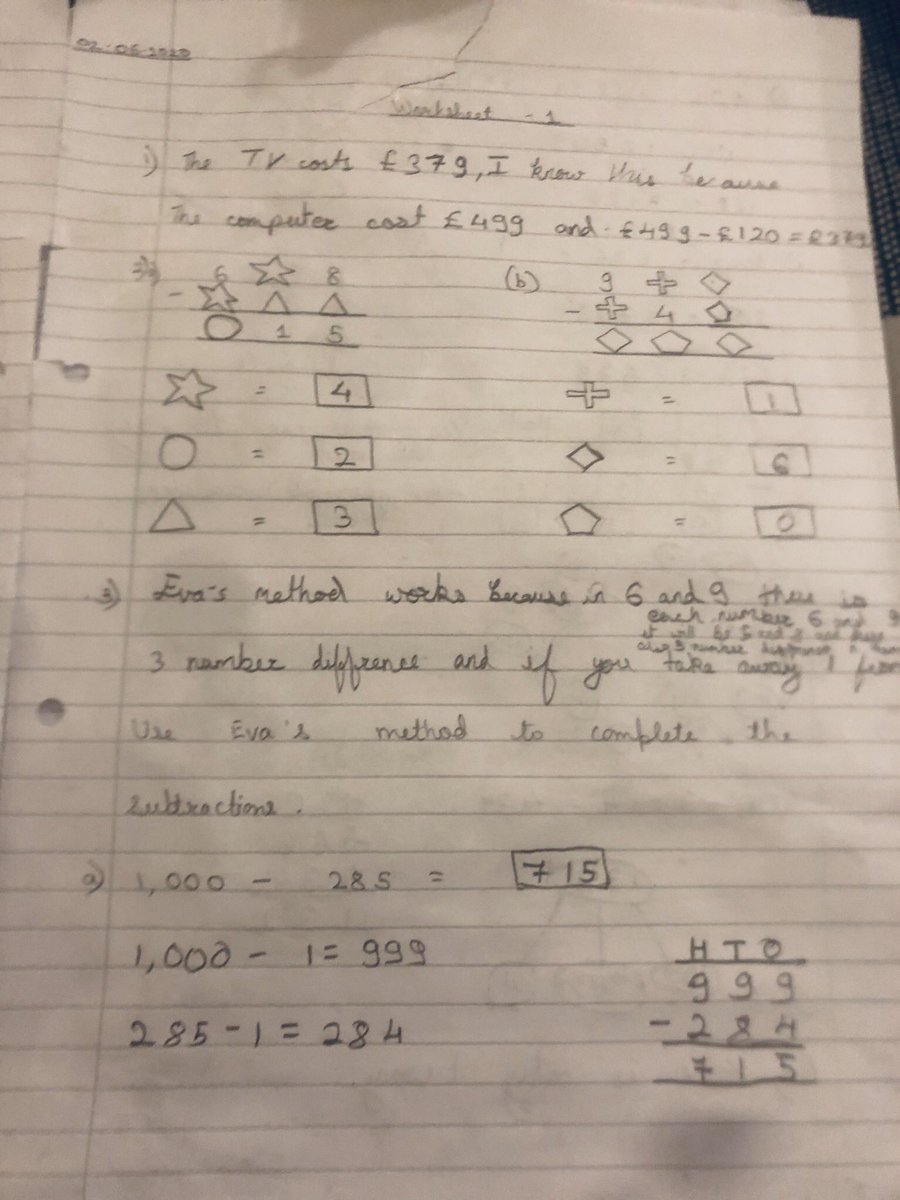 02.06.2020
Worksheet - 1
1) The TV costs £379, I know this because
The computer cost £499 and £499-£120=£379
6 ☆ 8 (b) 9 ✚ ◇
- ☆ △ △ - ✚ 4 ⬠
○ 1 5 ◇ ⬠ ◇
☆ = 4 ✚ = 1
○ = 2 ◇ = 6
△ = 3 ⬠ = 0
3) Eva's method works because in 6 and 9 there is
each number 6 and 9
it will be 5 and 8 and
3 number diffrence and if you take away 1 from
Use Eva's method to complete the
subtractions.
a) 1,000 - 285 = 715
1,000 - 1 = 999 H T O
9 9 9
285 - 1 = 284 - 2 8 4
7 1 5